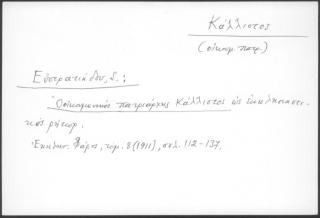 Κάλλιστος
(οἰκουμ. πατρ.)
Εὐστρατιάδου, Σ.:
Ὁ οἰκουμενικὸς πατριάρχης Κάλλιστος ὡς ἐκκλησιαστι-
κὸς ρήτωρ.
Ἐκκλησ. Φάρος, τόμ. 8 (1911), σελ. 112-137.